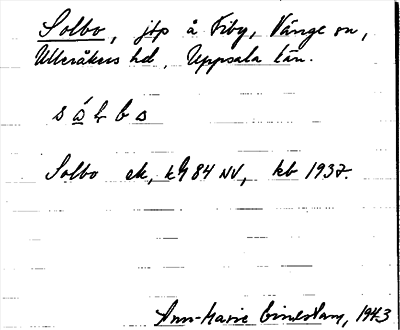 Solbo, jtp å Fiby, Vänge sn,
Ulleråkers hd, Uppsala län.
Solbo ek, 84 NV, kb 1937.
Ann-Marie 1943